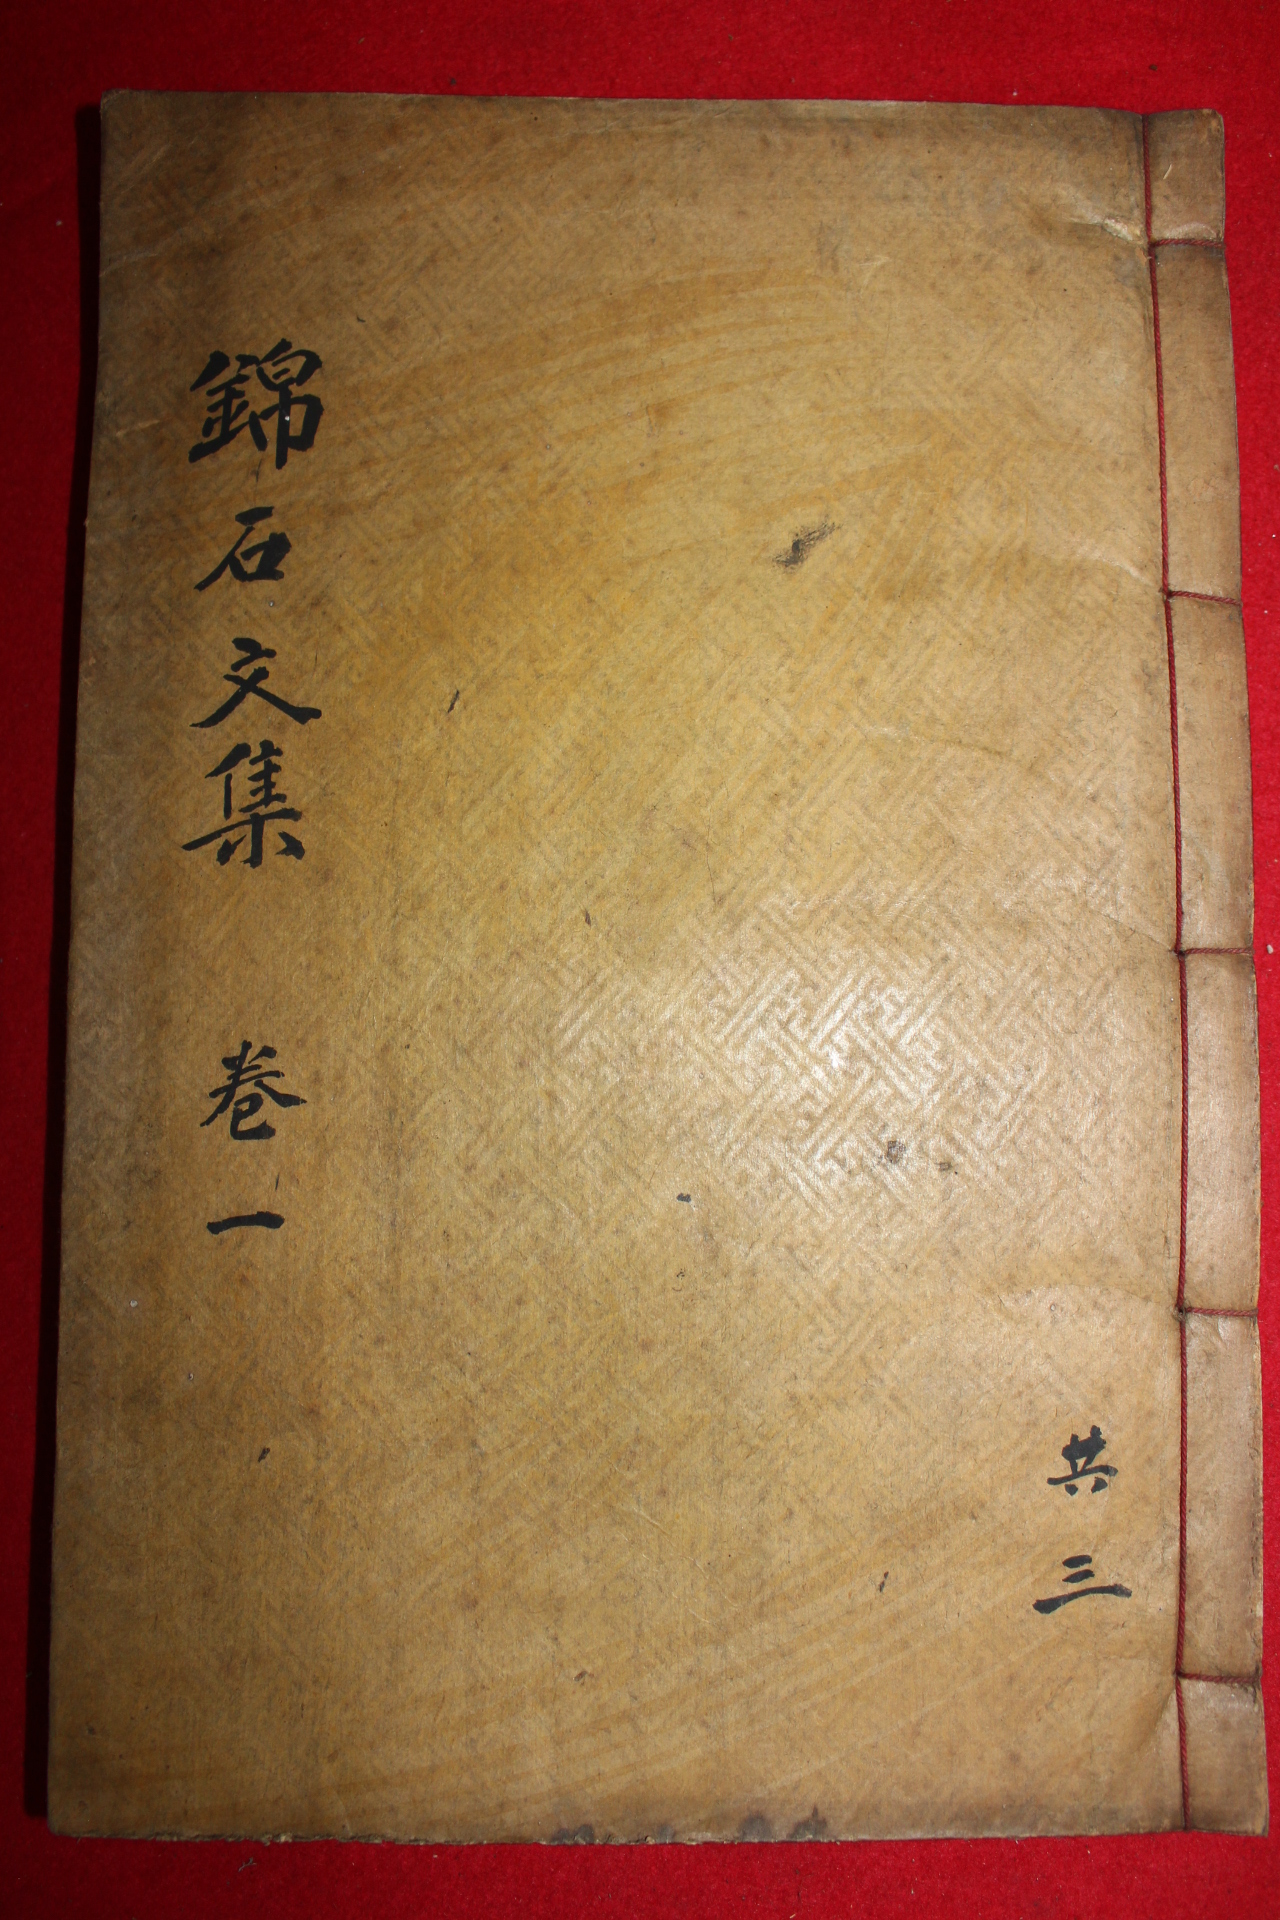 錦石文集 卷一
共三